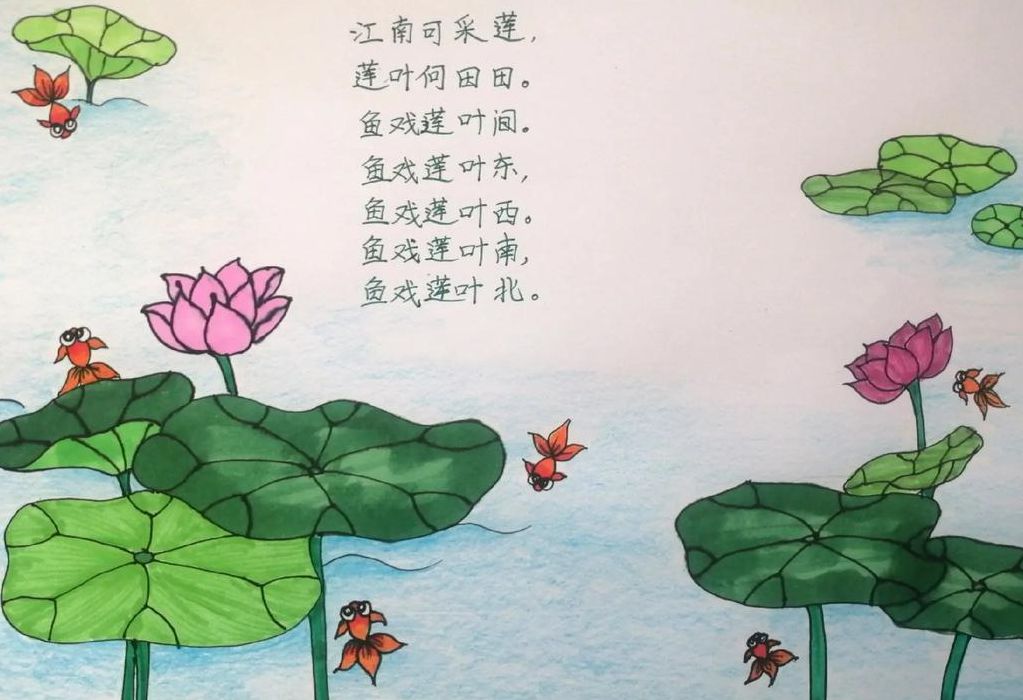 江南可采莲,
莲叶何田田。
鱼戏莲叶间。
鱼戏莲叶东,
鱼戏莲叶西。
鱼戏莲叶南,
鱼戏莲叶北。